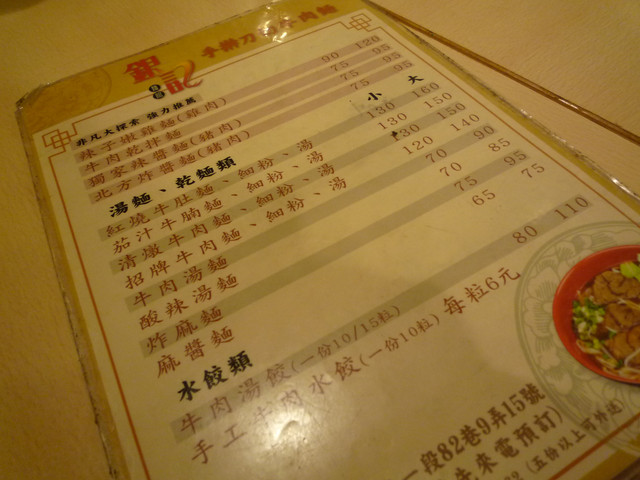 銀記 手擀刀 牛肉麵
非凡大探索 強力推薦
辣子嫩雞麵(雞肉)
牛肉乾拌麵 90 120
獨家辣醬麵(豬肉) 75 95
北方炸醬麵(豬肉) 75 95
湯麵、乾麵類 小 大
紅燒牛肚麵、細粉、湯 130 160
茄汁牛腩麵、細粉、湯 130 150
清燉牛肉麵、細粉、湯 130 150
招牌牛肉麵、細粉、湯 120 140
牛肉湯麵 70 90
酸辣湯麵 70 85
炸麻麵 75 95
麻醬麵 65 75
水餃類
牛肉湯餃(一份10/15粒) 80 110
手工牛肉水餃(一份10粒) 每粒6元
一段82巷9弄15號
先來電預訂)
(五份以上可外送